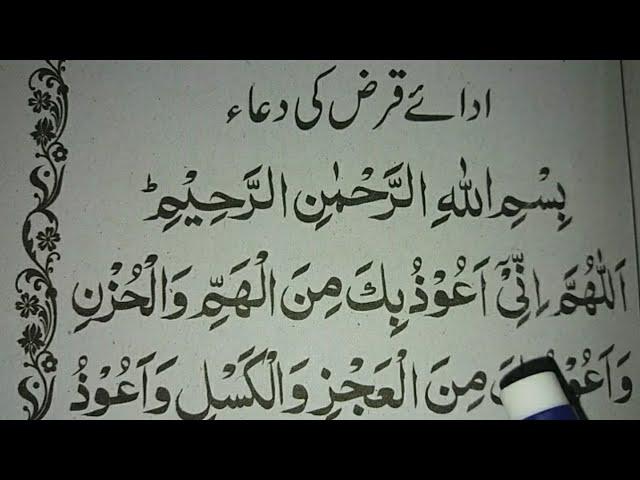 ادائے قرض کی دعاء
بِسْمِ اللهِ الرَّحْمٰنِ الرَّحِيْمِ ؕ
اَللّٰهُمَّ اِنِّيْٓ اَعُوْذُ بِكَ مِنَ الْهَمِّ وَالْحُزْنِ
مِنَ الْعَجْزِ وَالْكَسْلِ وَاَعُوْذُ